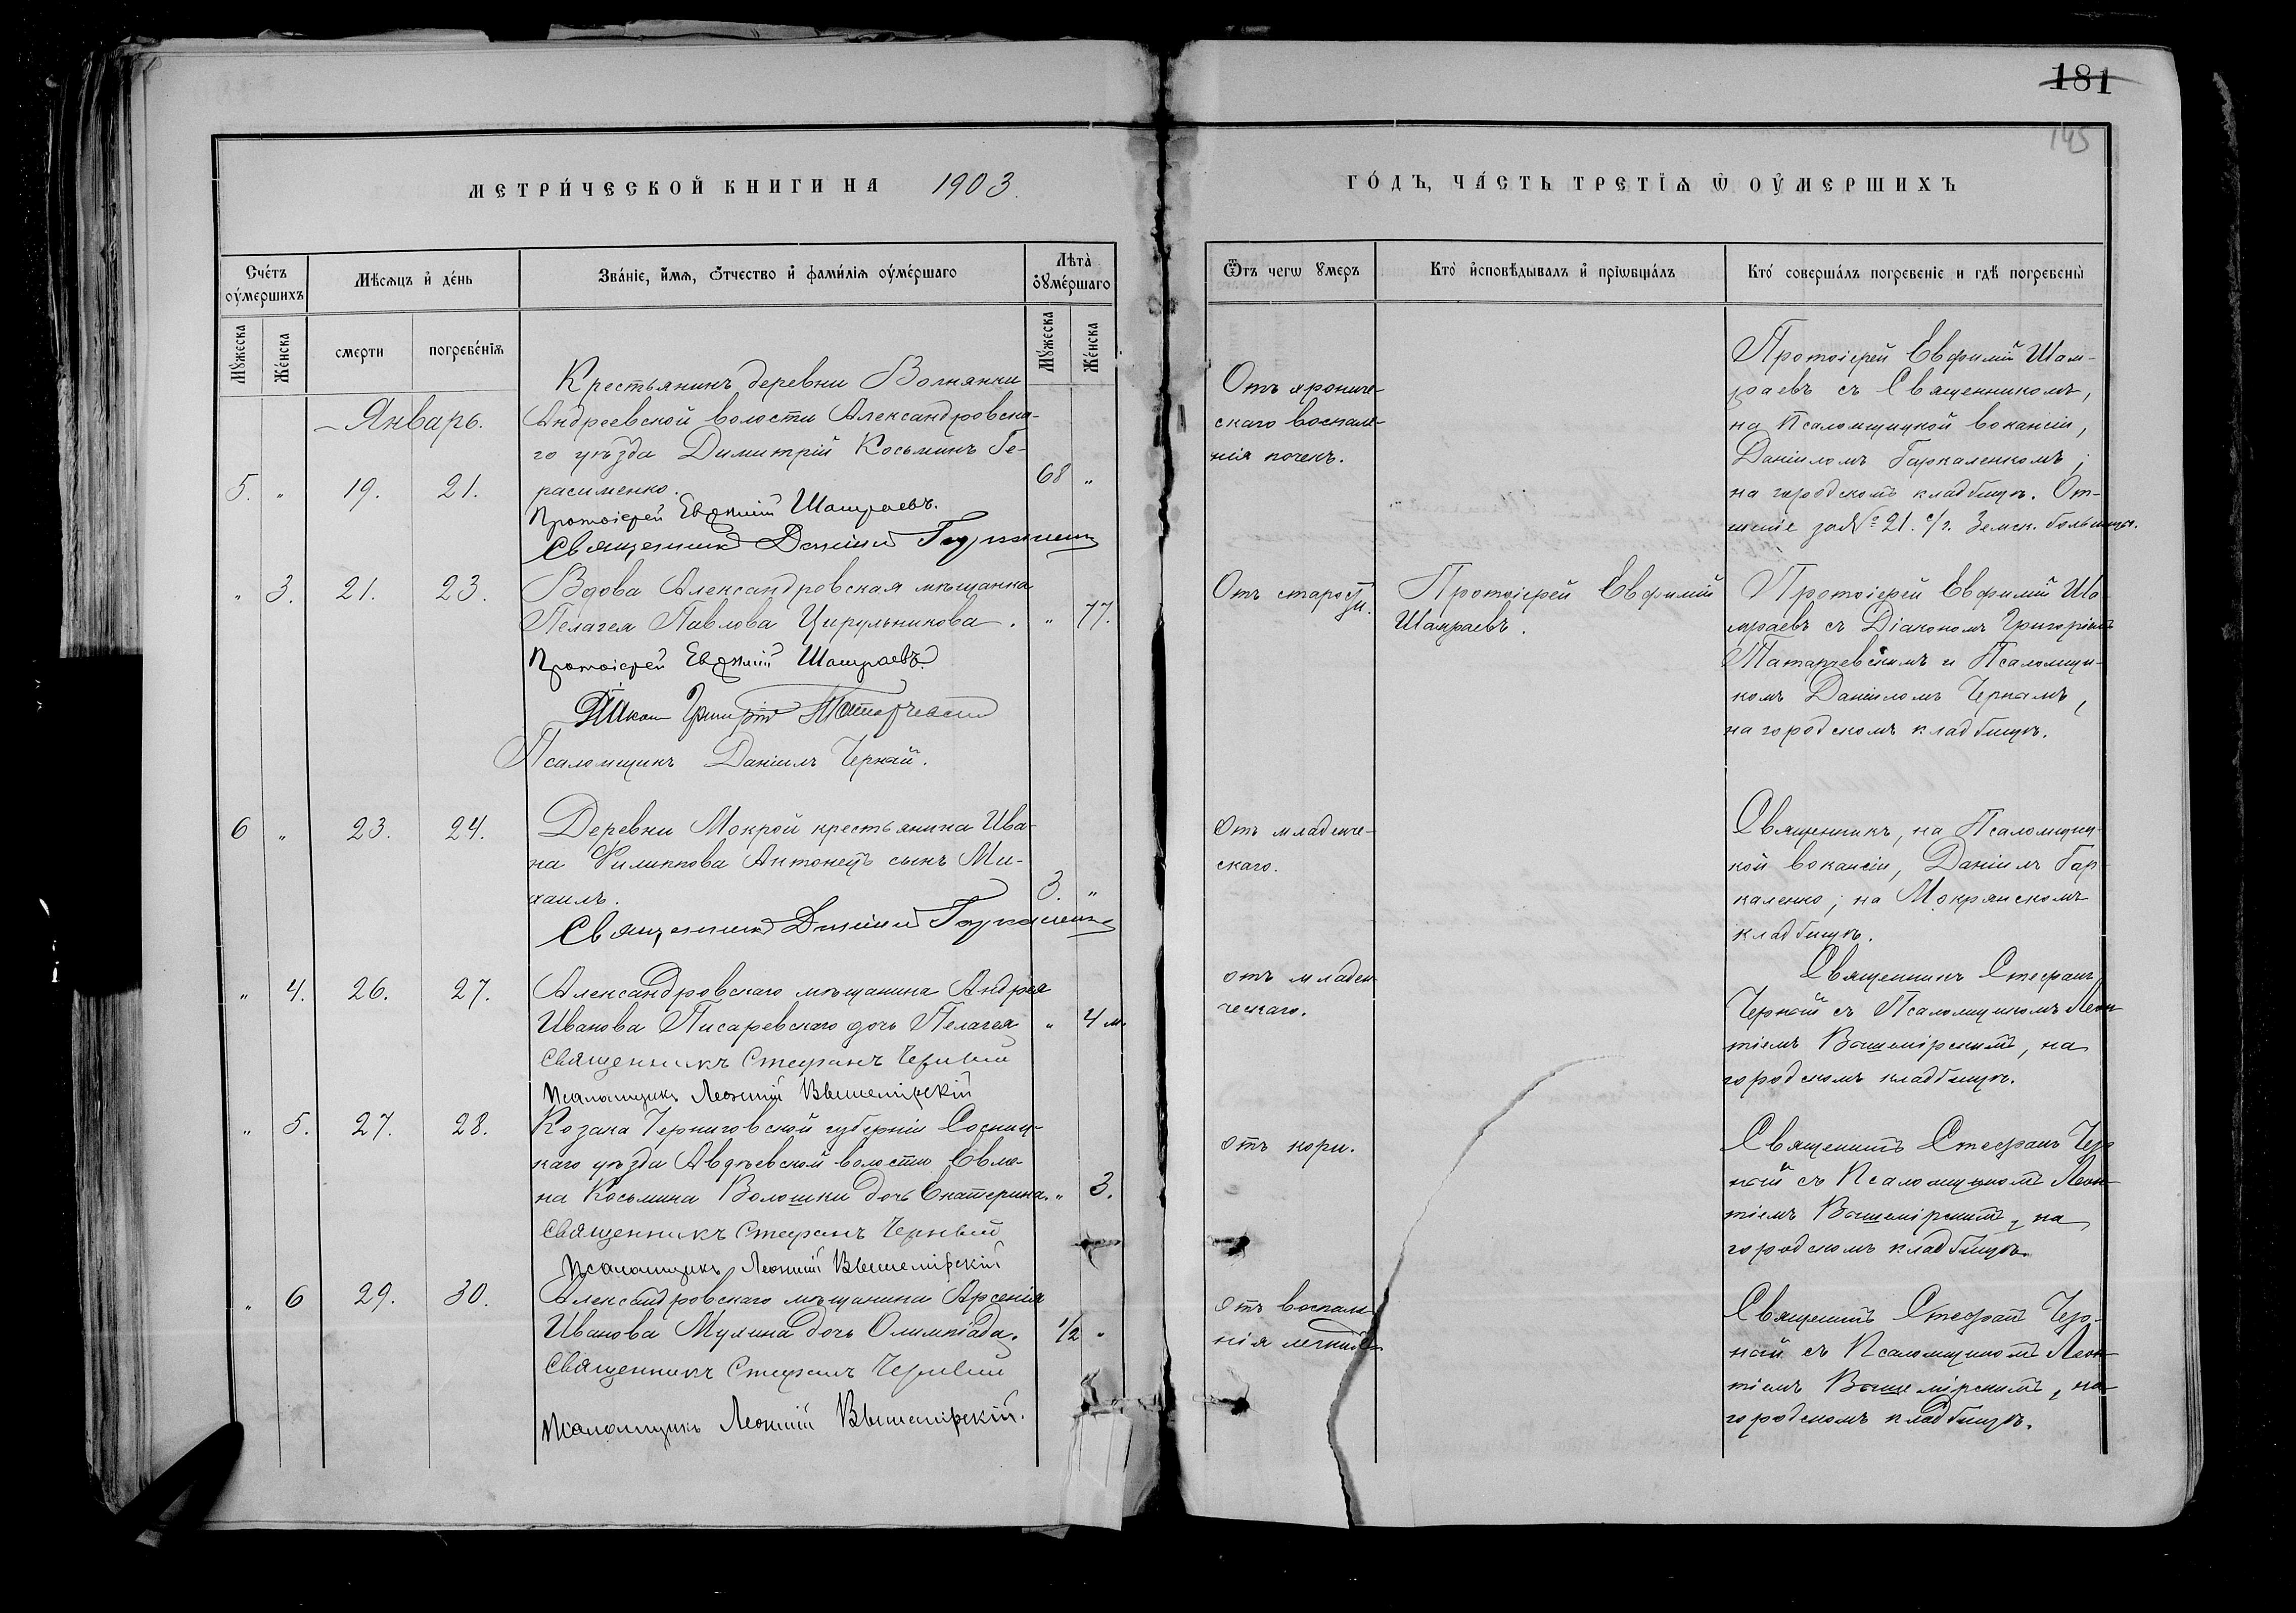 181
145
МЕТРИ́ЧЕСКОЙ КНИГИ НА 1903.
ГО́ДЪ, ЧА́СТЬ ТРЕТІѦ Ѡ ОУ҆МЕРШИХЪ
Сче́тъ оу҆́мершихъ
Мѣсѧцъ и҆ де́нь
Зва́нїе, и҆́мѧ, ѻ҆́тчество и҆ фами́лїѧ оу҆ме́ршаго
Лѣта̀ оу҆ме́ршаго
Ѿтъ чегѡ ᲂумеръ
Кто̀ и҆сповѣ́дывалъ и҆ прїѡбща́лъ
Кто́ соверша́лъ погребенїе и гдѣ̀ погребены̀
Мꙋ́жеска
Же́нска
смерти
погребе́нїѧ
Мꙋ́жеска
Же́нска
Январь.
5. " 19. 21.
Крестьянинъ деревни Волнянки
Андреевской волости Александровска-
го уѣзда Димитрій Косьминъ Ге-
расименко.
68 "
Протоіерей Евѳимій Шамраевъ.
Священникъ Даніилъ Гаркаленко
Отъ хрониче-
скаго воспале-
нія почекъ.
Протоіерей Евфимій Шам-
раевъ съ Священникомъ,
на Псаломщицкой вокансіи,
Даніиломъ Гаркаленкомъ;
на городскомъ кладбищѣ. От-
шеніе за № 21. с/г. Земск. больницы.
" 3. 21. 23.
Вдова Александровская мѣщанка
Пелагея Павлова Цирульникова.
" 77.
Протоіерей Евѳимій Шамраевъ.
Діаконъ Григорій Татарчевскій
Псаломщикъ Даніилъ Черный.
Отъ старости.
Протоіерей Евфимій
Шамраевъ.
Протоіерей Евфимій Ша-
мраевъ съ Діакономъ Григоріемъ
Татарчевскимъ и Псаломщи-
комъ Даніиломъ Чернымъ,
на городскомъ кладбищѣ.
6 " 23. 24.
Деревни Мокрой крестьянина Ива-
на Филиппова Антонецъ сынъ Ми-
хаилъ.
3. "
Священникъ Даніилъ Гаркаленко
Отъ младенче-
скаго.
Священникъ, на Псаломщиц-
кой вокансіи, Даніилъ Гар-
каленко; на Мокрянскомъ
кладбищѣ.
" 4. 26. 27.
Александровскаго мѣщанина Андрея
Иванова Писаревскаго дочь Пелагея
" 4 м.
Священникъ Стефанъ Черный
Псаломщикъ Леонтій Вышемірскій
отъ младен-
ческаго.
Священникъ Стефанъ
Черный съ Псаломщикомъ Леон-
тіемъ Вышемірскимъ, на
городскомъ кладбищѣ.
" 5. 27. 28.
Козака Черниговской губерніи Сосниц-
каго уѣзда Авдѣевской волости Евме-
на Косьмина Волошки дочь Екатерина.
" 3.
Священникъ Стефанъ Черный
Псаломщикъ Леонтій Вышемірскій
отъ кори.
Священникъ Стефанъ Чер-
ный съ Псаломщикомъ Леон-
тіемъ Вышемірскимъ, на
городскомъ кладбищѣ.
" 6 29. 30.
Александровскаго мѣщанина Арсенія
Иванова Мухина дочь Олимпіада.
1/2 "
Священникъ Стефанъ Черный
Псаломщикъ Леонтій Вышемірскій.
отъ воспале-
нія легкихъ
Священникъ Стефанъ Чер-
ный съ Псаломщикомъ Леон-
тіемъ Вышемірскимъ, на
городскомъ кладбищѣ.